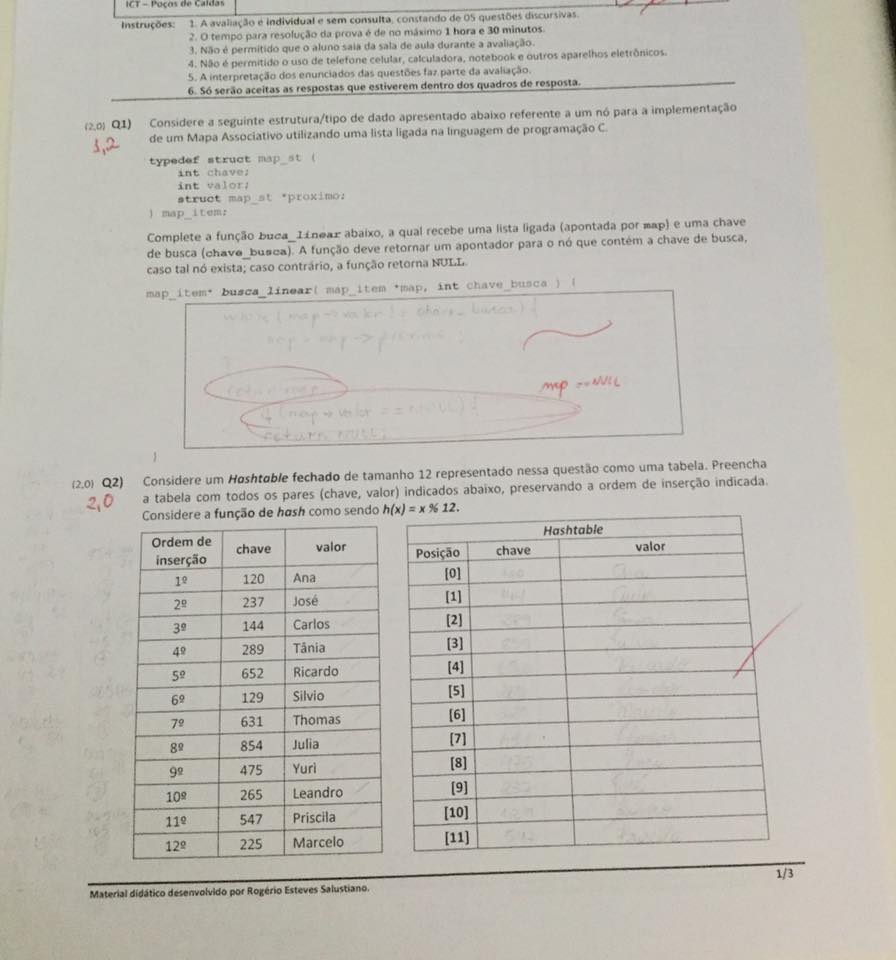 ICT – Poços de Caldas
Instruções: 1. A avaliação é individual e sem consulta, constando de 05 questões discursivas.
2. O tempo para resolução da prova é de no máximo 1 hora e 30 minutos.
3. Não é permitido que o aluno saia da sala de aula durante a avaliação.
4. Não é permitido o uso de telefone celular, calculadora, notebook e outros aparelhos eletrônicos.
5. A interpretação dos enunciados das questões faz parte da avaliação.
6. Só serão aceitas as respostas que estiverem dentro dos quadros de resposta.
(2,0) Q1) Considere a seguinte estrutura/tipo de dado apresentado abaixo referente a um nó para a implementação
1,2 de um Mapa Associativo utilizando uma lista ligada na linguagem de programação C.
typedef struct map_st {
int chave;
int valor;
struct map_st *proximo;
} map_item;
Complete a função buca_linear abaixo, a qual recebe uma lista ligada (apontada por map) e uma chave
de busca (chave_busca). A função deve retornar um apontador para o nó que contém a chave de busca,
caso tal nó exista; caso contrário, a função retorna NULL.
map_item* busca_linear( map_item *map, int chave_busca ) {
while (map->valor != chave_busca) {
map = map->proximo;
}
return map;
map == NULL
if (map->valor == NULL) {
return NULL;
}
(2,0) Q2) Considere um Hashtable fechado de tamanho 12 representado nessa questão como uma tabela. Preencha
2,0 a tabela com todos os pares (chave, valor) indicados abaixo, preservando a ordem de inserção indicada.
Considere a função de hash como sendo h(x) = x % 12.
Ordem de inserção chave valor
1º 120 Ana
2º 237 José
3º 144 Carlos
4º 289 Tânia
5º 652 Ricardo
6º 129 Silvio
7º 631 Thomas
8º 854 Julia
9º 475 Yuri
10º 265 Leandro
11º 547 Priscila
12º 225 Marcelo
Hashtable
Posição chave valor
[0]
[1]
[2]
[3]
[4] Ricardo
[5]
[6]
[7]
[8]
[9]
[10]
[11]
1/3
Material didático desenvolvido por Rogério Esteves Salustiano.